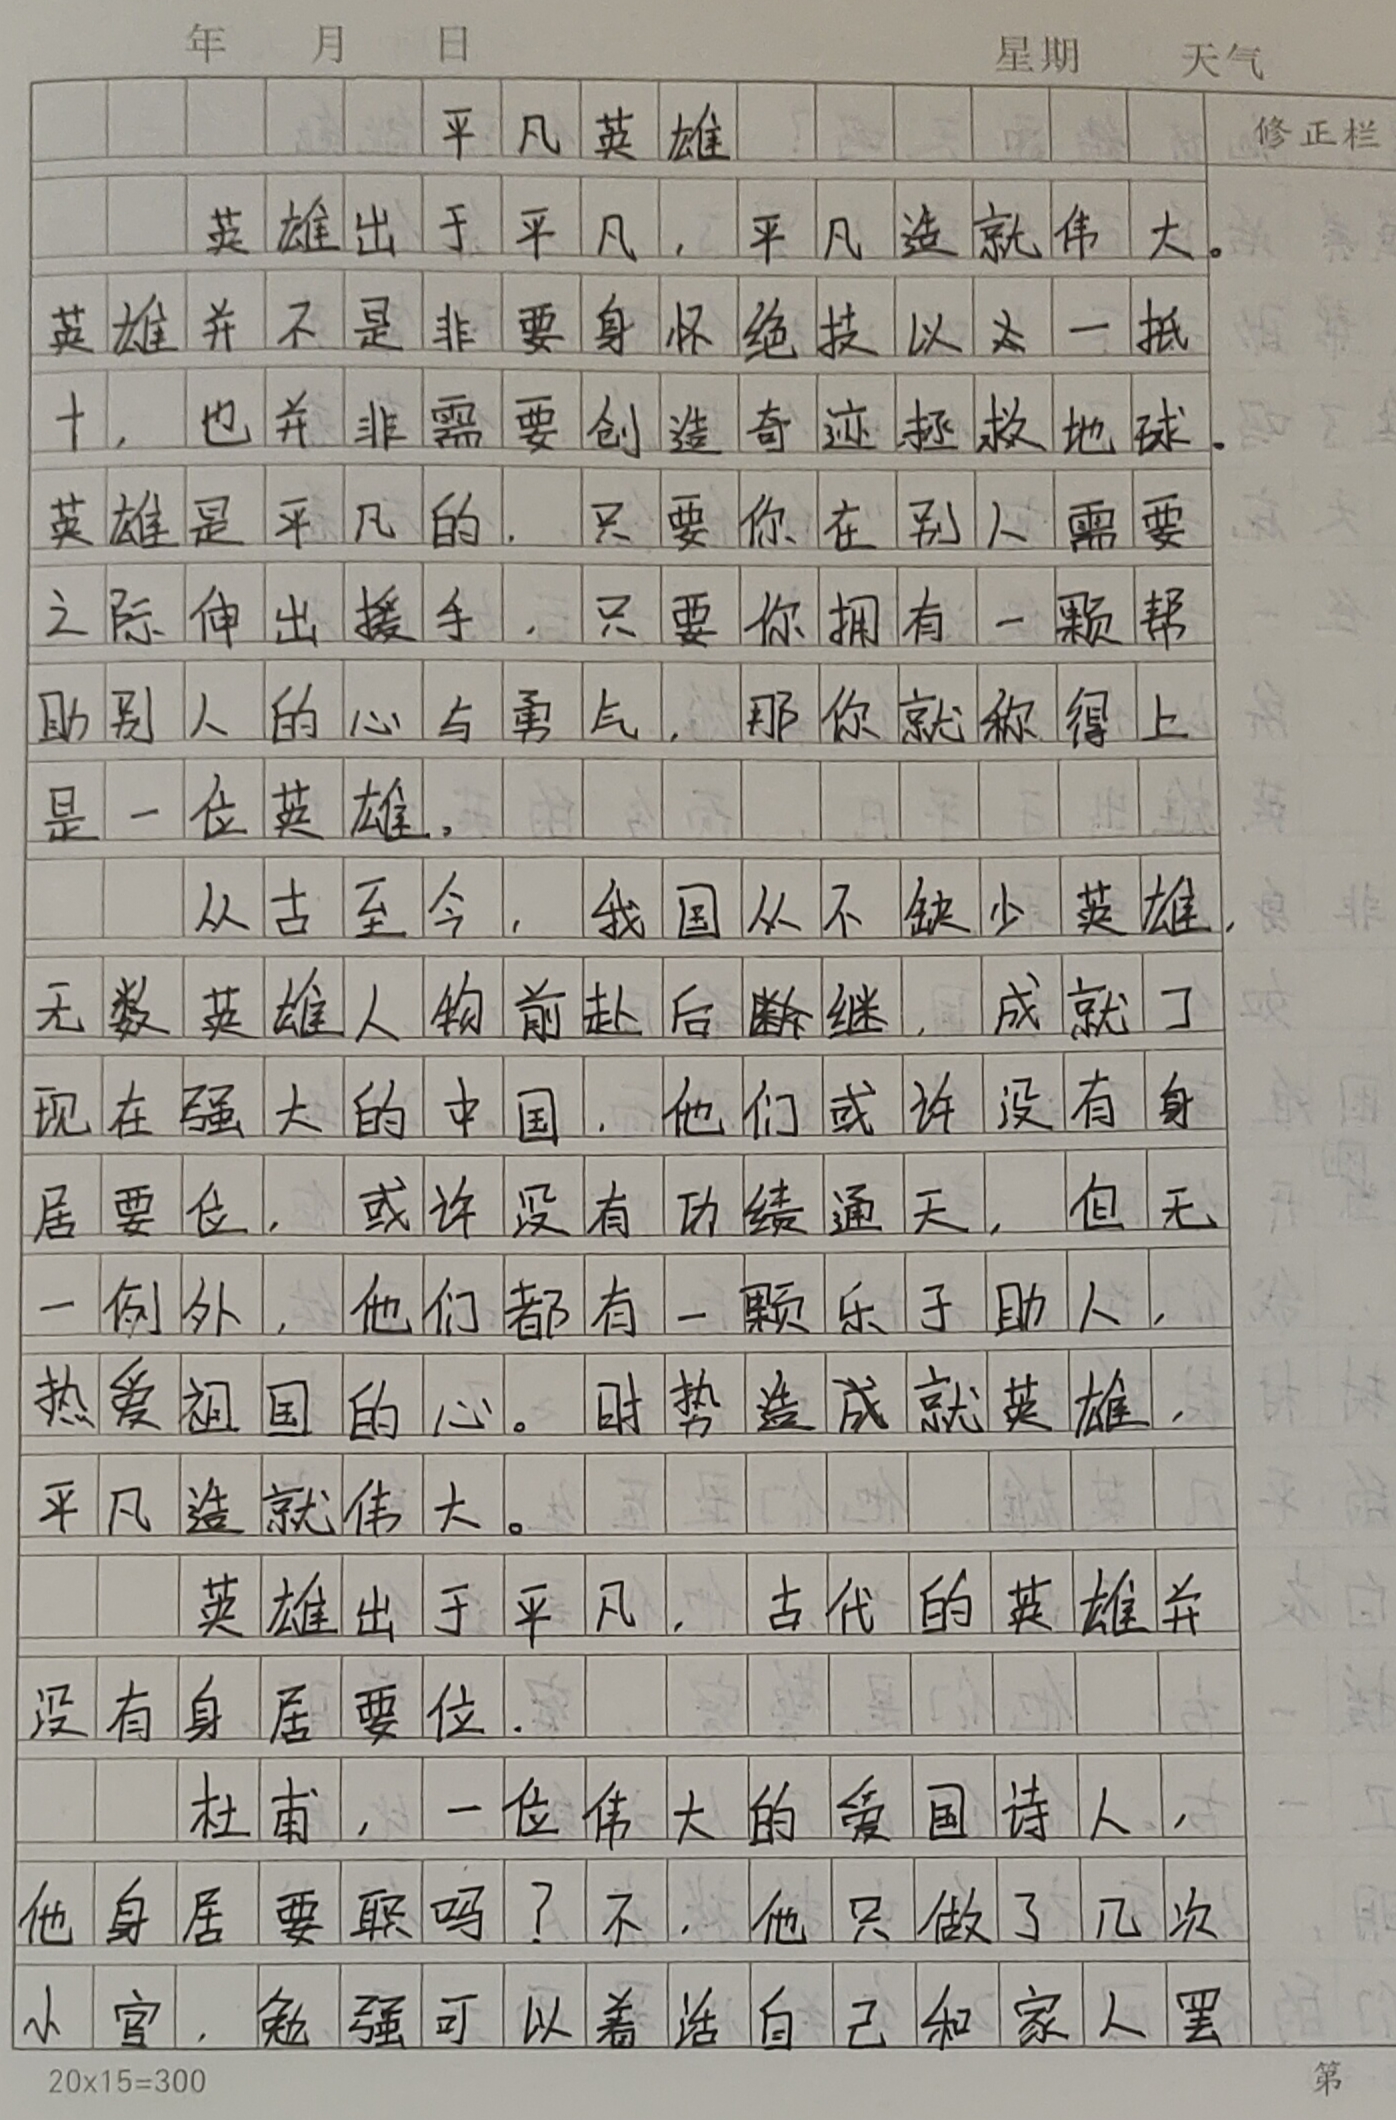 年 月 日 星期 天气
平凡英雄
修正栏
英雄出于平凡，平凡造就伟大。
英雄并不是非要身怀绝技以一抵
十，也并非需要创造奇迹拯救地球。
英雄是平凡的，只要你在别人需要
之际伸出援手，只要你拥有一颗帮
助别人的心与勇气，那你就称得上
是一位英雄。
从古至今，我国从不缺少英雄，
无数英雄人物前赴后继，成就了
现在强大的中国，他们或许没有身
居要位，或许没有功绩通天，但无
一例外，他们都有一颗乐于助人，
热爱祖国的心。时势造成就英雄，
平凡造就伟大。
英雄出于平凡，古代的英雄并
没有身居要位.
杜甫，一位伟大的爱国诗人，
他身居要职吗？不，他只做了几次
小官，勉强可以着活自己和家人罢
20x15=300
第